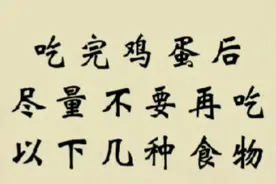 吃完鸡蛋后
尽量不要再吃
以下几种食物